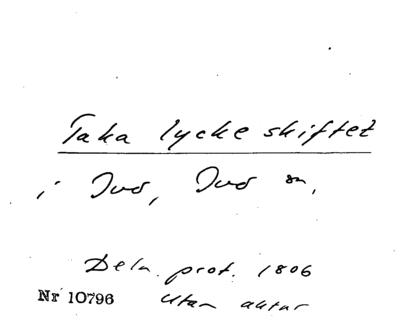 Taka lycke skiftet
i Ivö, Ivö sn,
Deln. prot. 1806
Nr 10796 utan aktnr